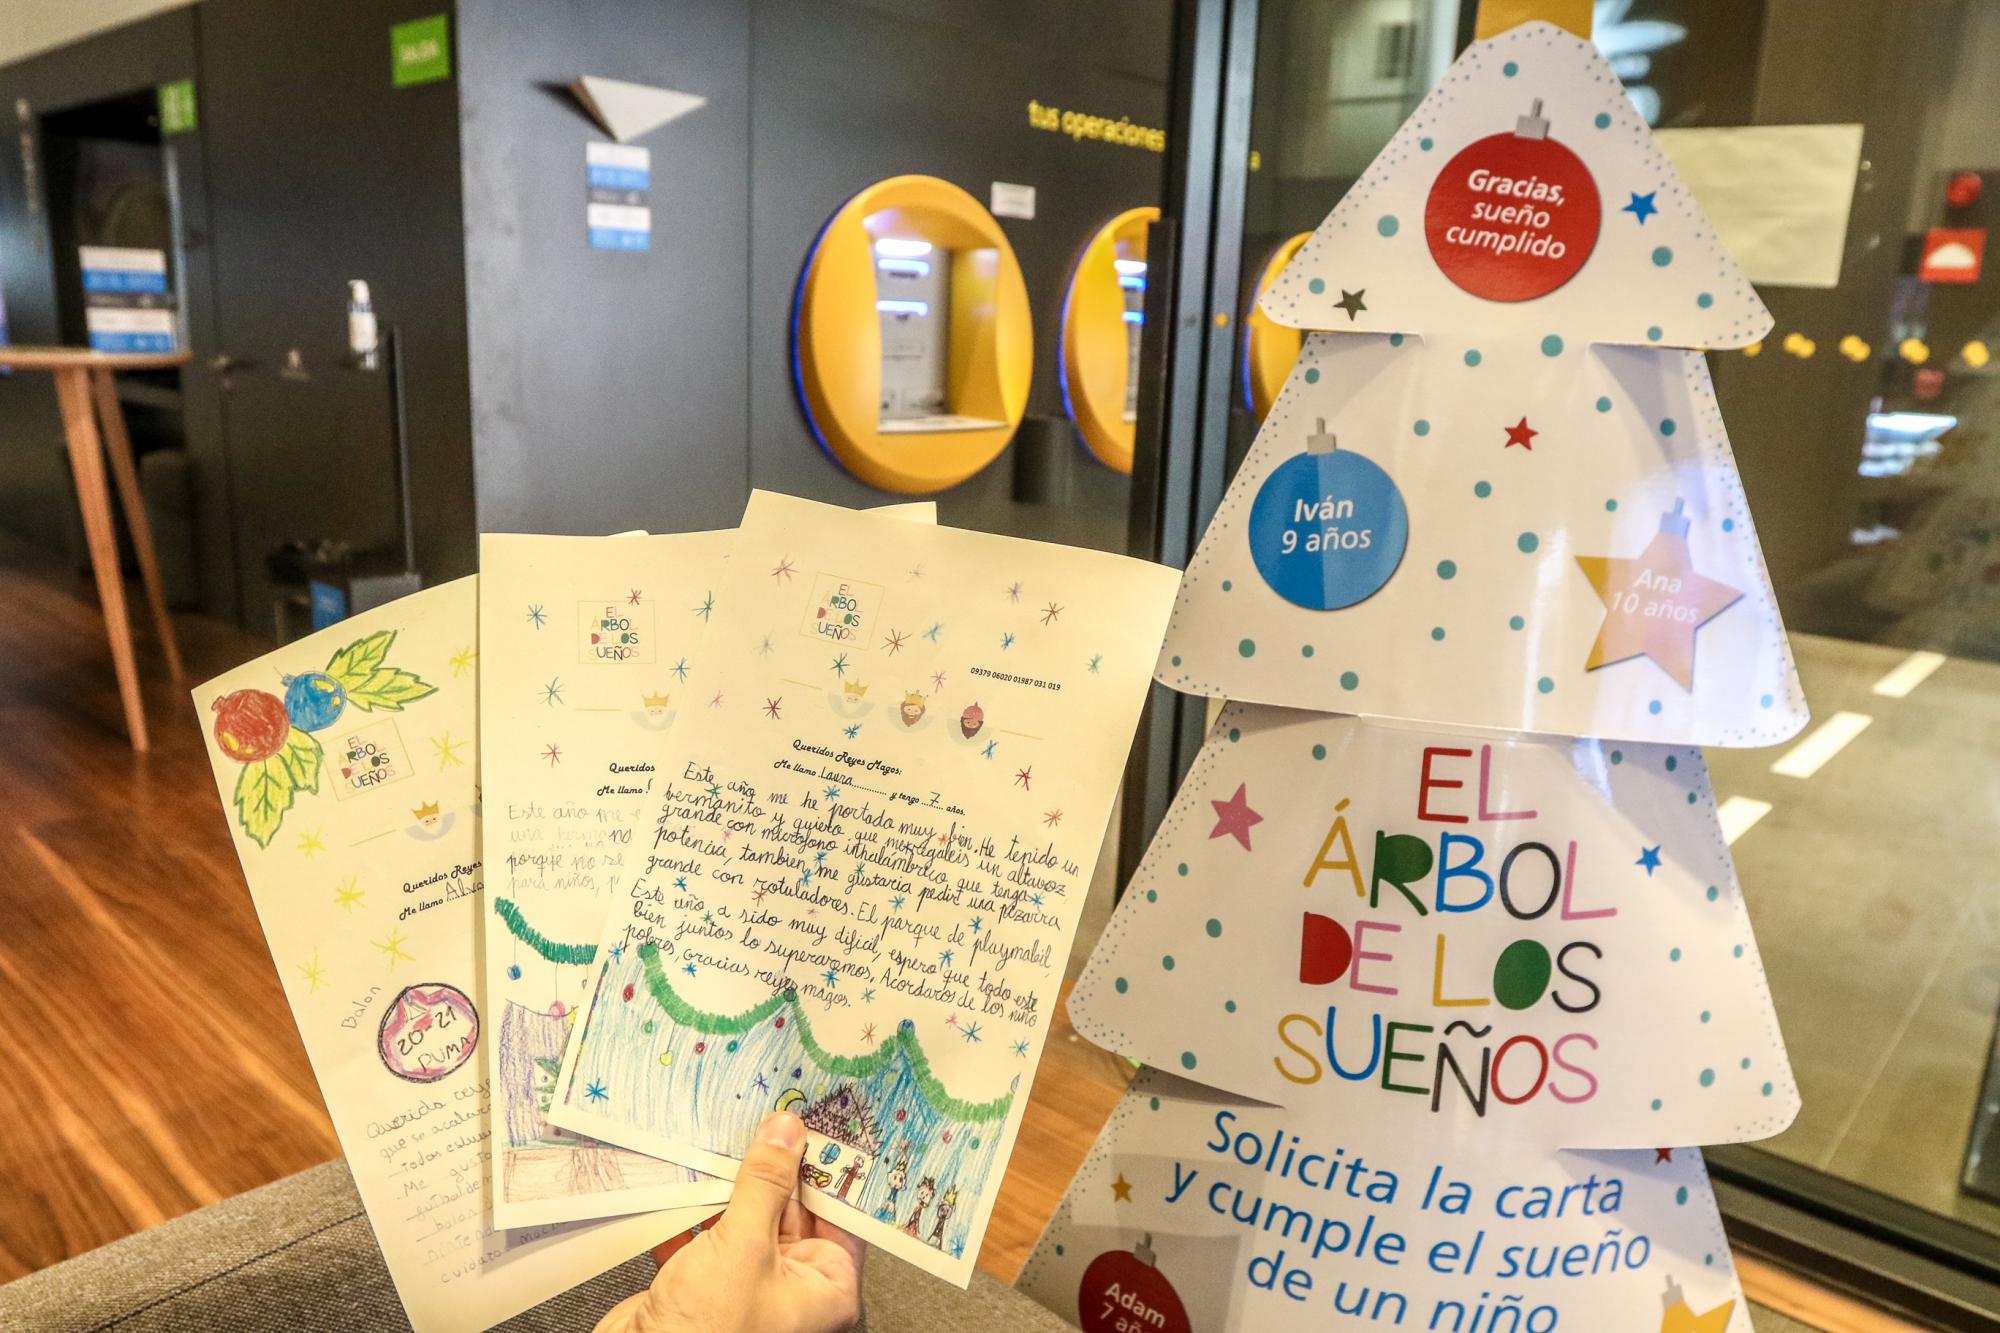 SALIDA
tus operaciones
Gracias,
sueño
cumplido
Iván
9 años
Ana
10 años
EL
ÁRBOL
DE LOS
SUEÑOS
Solicita la carta
y cumple el sueño
de un niño
Adam
7 añ
EL
ÁRBOL
DE LOS
SUEÑOS
09379 06020 01987 031 019
Queridos Reyes Magos:
Me llamo Laura y tengo 7 años.
Este año me he portado muy bien. He tenido un
hermanito y quiero que me regaleis un altavoz
grande con microfono inhalambrico que tenga
potencia, tambien me gustaria pedir una pizarra
grande con rotuladores. El parque de playmobil
Este año a sido muy dificil, espero que todo este
bien juntos lo superaremos, Acordaros de los niño
pobres, gracias reyes magos.
EL
ÁRBOL
DE LOS
SUEÑOS
Queridos
Me llamo
Este año me
una herma
porque no se
para niños,
EL
ÁRBOL
DE LOS
SUEÑOS
Queridos Reyes
Me llamo Alva
Balon
20-21
PUMA
Querido reye
que se acabara
todos
Me gusta